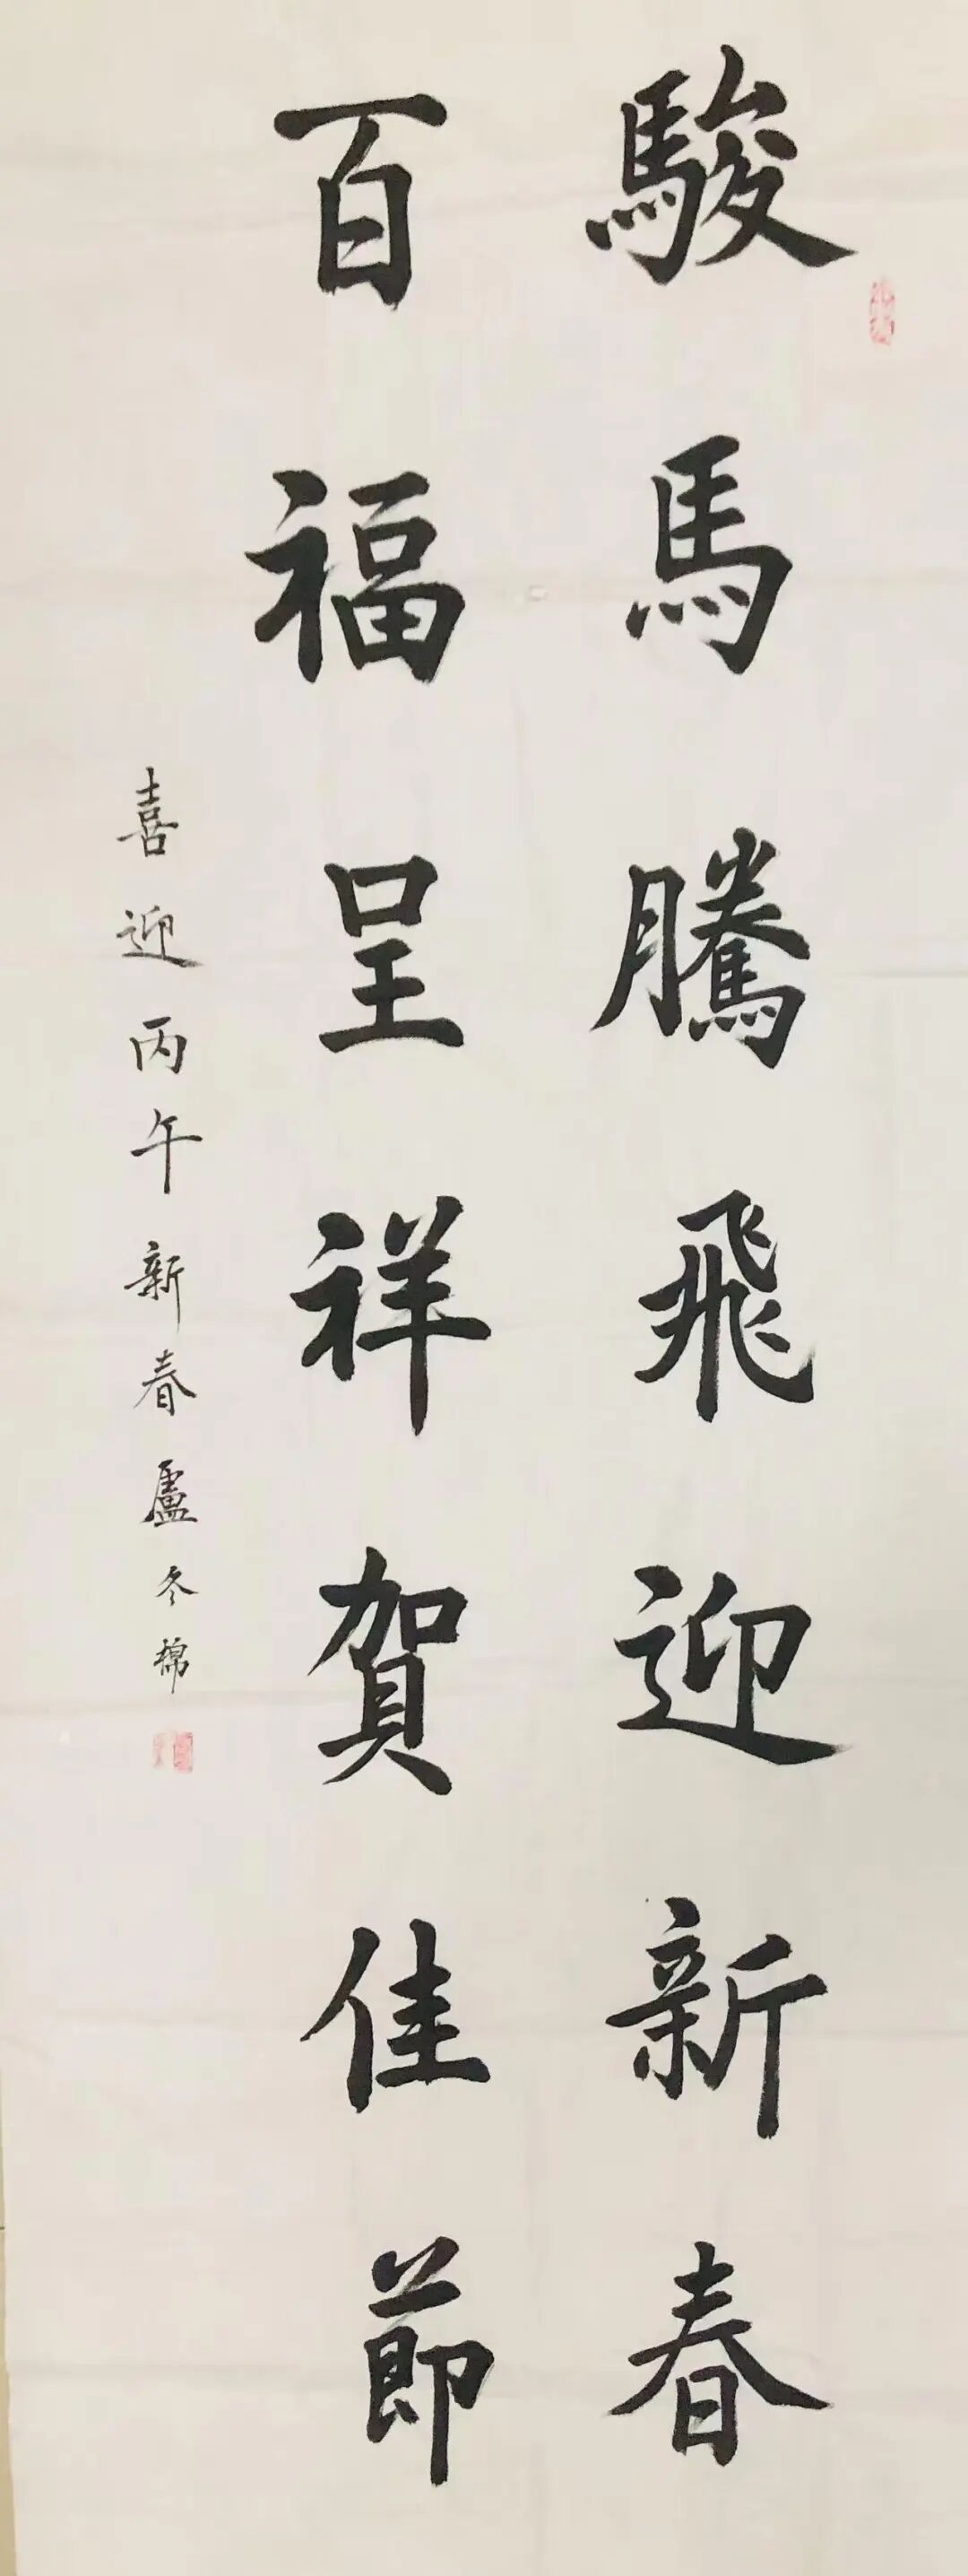 駿馬騰飛迎新春
百福呈祥賀佳節
喜迎丙午新春盧冬棉